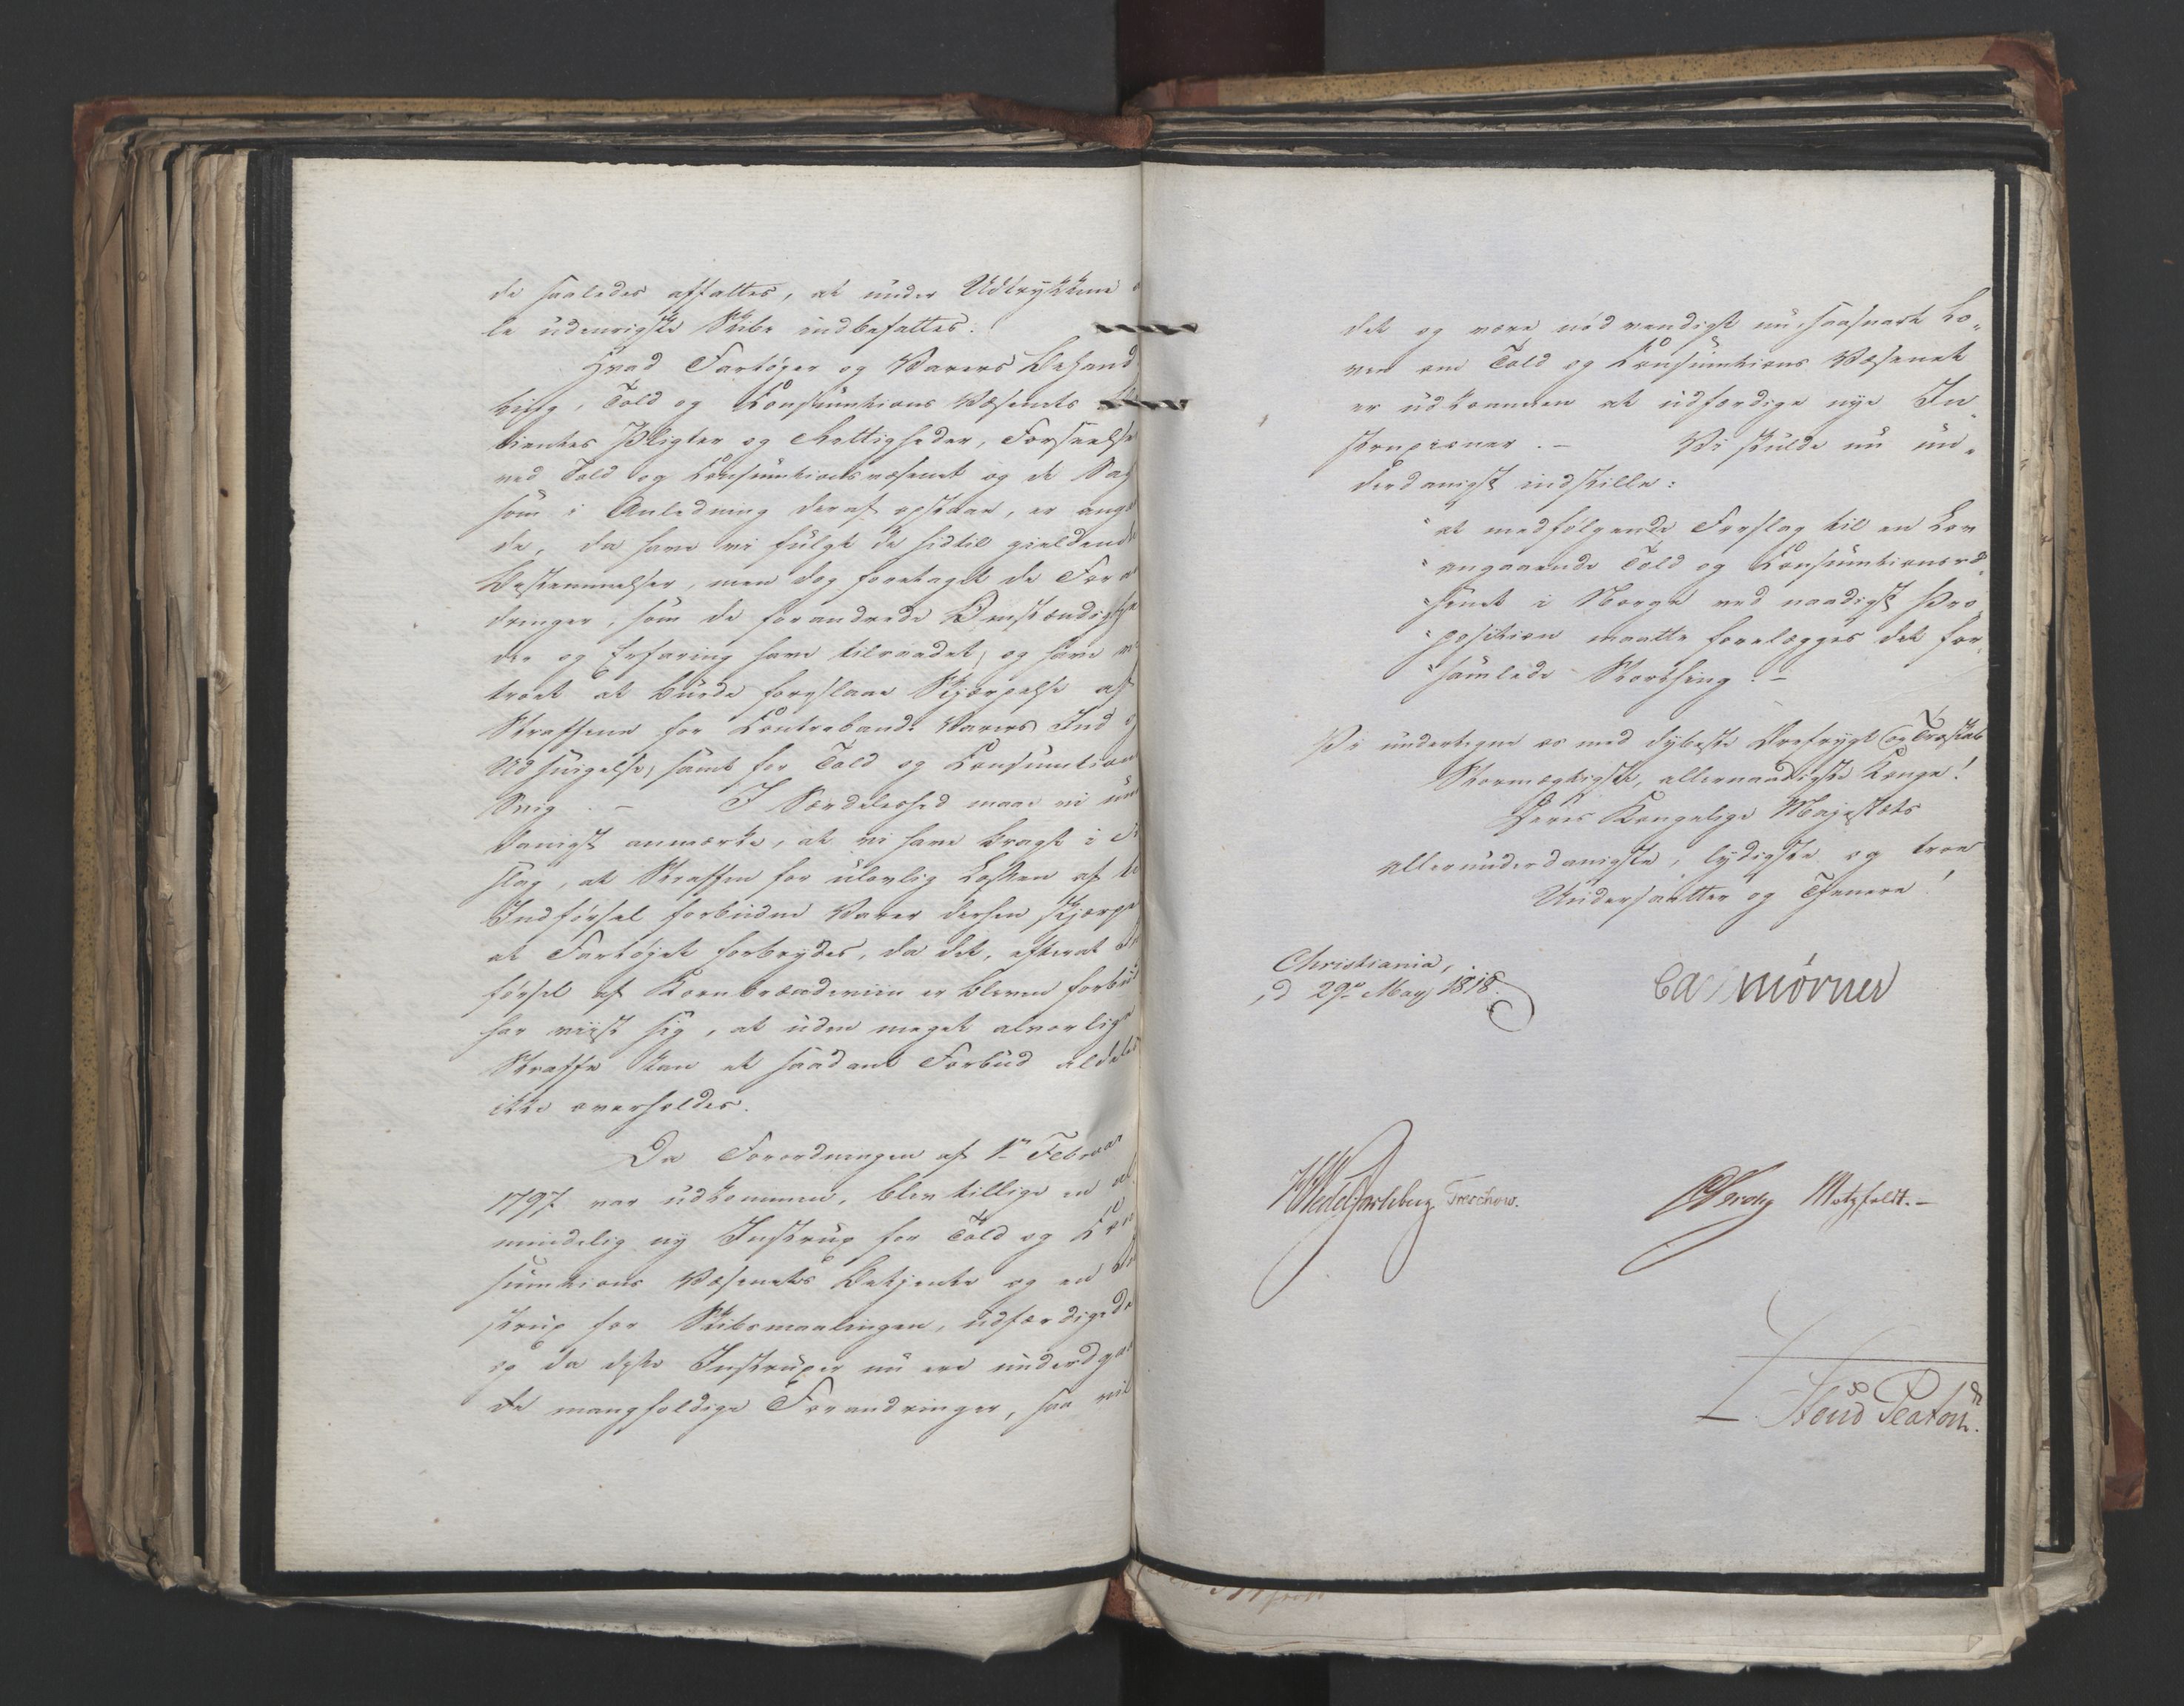 de saaledes affattes, at under Udtrykkene
le udenrigske Skibe indbefattes.
Hvad Fartøyer og Varers Behand
ling, Told og Consumtions Væsenets
tientes Pligter og Rettigheder, Forseelse
ved Told og Consumtionsvæsenet og de Sag
som i Anledning deraf opstaae, er angaa
de, da have vi fulgt de hidtil gieldende
Bestemmelser, men dog foretaget de Foran
dringer, som de forandrede Omstændighe
der og Erfaring have tilraadet, og have vi
troet at burde foreslaae Skjærpelse af
Straffene for Contrabande Varers Ind og
Udsnigelse, samt for Told og Consumtions
Svig. – I Særdeleshed maae vi un
danigst anmærke, at vi have bragt i
slag, at Straffen for ulovlig Losssen af til
Indførsel forbudne Varer derhen skjærpe
at Fartøjet forbrydes, da det, efterat
førsel af Kornbrændeviin er bleven forbudt
har viist sig, at uden meget alvorlige
Straffe kan et saadant Forbud aldeles
ikke overholdes.
Da Forordningen af 1ste Februar
1797 var udkommen, blev tillige en al
mindelig ny Instrux for Told og Con
sumtions Væsenets Betjente og en In
strux for Skibsmaalingen, udfærdigede
og da disse Instruxer nu ere undergaa
de mangfoldige Forandringer, saa vil
det og være nødvendigt nu, saasnart Lo„
ven om Told og Consumtions Væsenet
er udkommen at udfærdige nye In„
struxioner. – Vi skulde nu un„
derdanigst indstille:
"at medfølgende Forslag til en Lov
"angaaende Told og Consumtionsvæ„
"senet i Norge ved naadigst Pro„
"position maatte forelægges det for„
"samlede Storthing. –
Vi undertegne os med dybeste Ærefrygt og Troskab
Stormægtigste, allernaadigste Konge!
Deres Kongelige Majestæts
allerunderdanigste, lydigste og troe
Undersaatter og Tjenere!
Christiania,
d 29de May 1818.
CA Mörner
HWedel Jarlsberg Treschow.
Motzfeldt. –